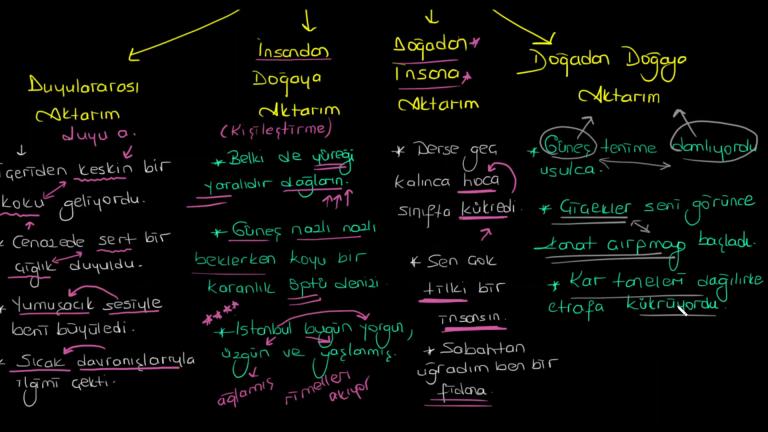 Duyulararası
Aktarım
duyu a.
içeriden keskin bir
koku geliyordu.
* Cenazede sert bir
çığlık duyuldu.
* Yumuşacık sesiyle
beni büyüledi.
* Sıcak davranışlarıyla
ilgimi çekti.
İnsandan
Doğaya
Aktarım
(Kişileştirme)
* Belki de yüreği
yaralıdır dağların.
* Güneş nazlı nazlı
beklerken koyu bir
karanlık öptü denizi.
****
* İstanbul bugün yorgun,
üzgün ve yaşlanmış.
ağlamış rimelleri
akıyor
Doğadan *
İnsana *
Aktarım
* Derse geç
kalınca hoca
sınıfta kükredi.
* Sen çok
tilki bir
insansın.
* Sabahtan
uğradım ben bir
fidana.
Doğadan Doğaya
Aktarım
* Güneş tenime damlıyordu
usulca.
* Çiçekler seni görünce
kanat çırpmaya başladı.
* Kar taneleri dağılırke
etrafa kükrüyordu.